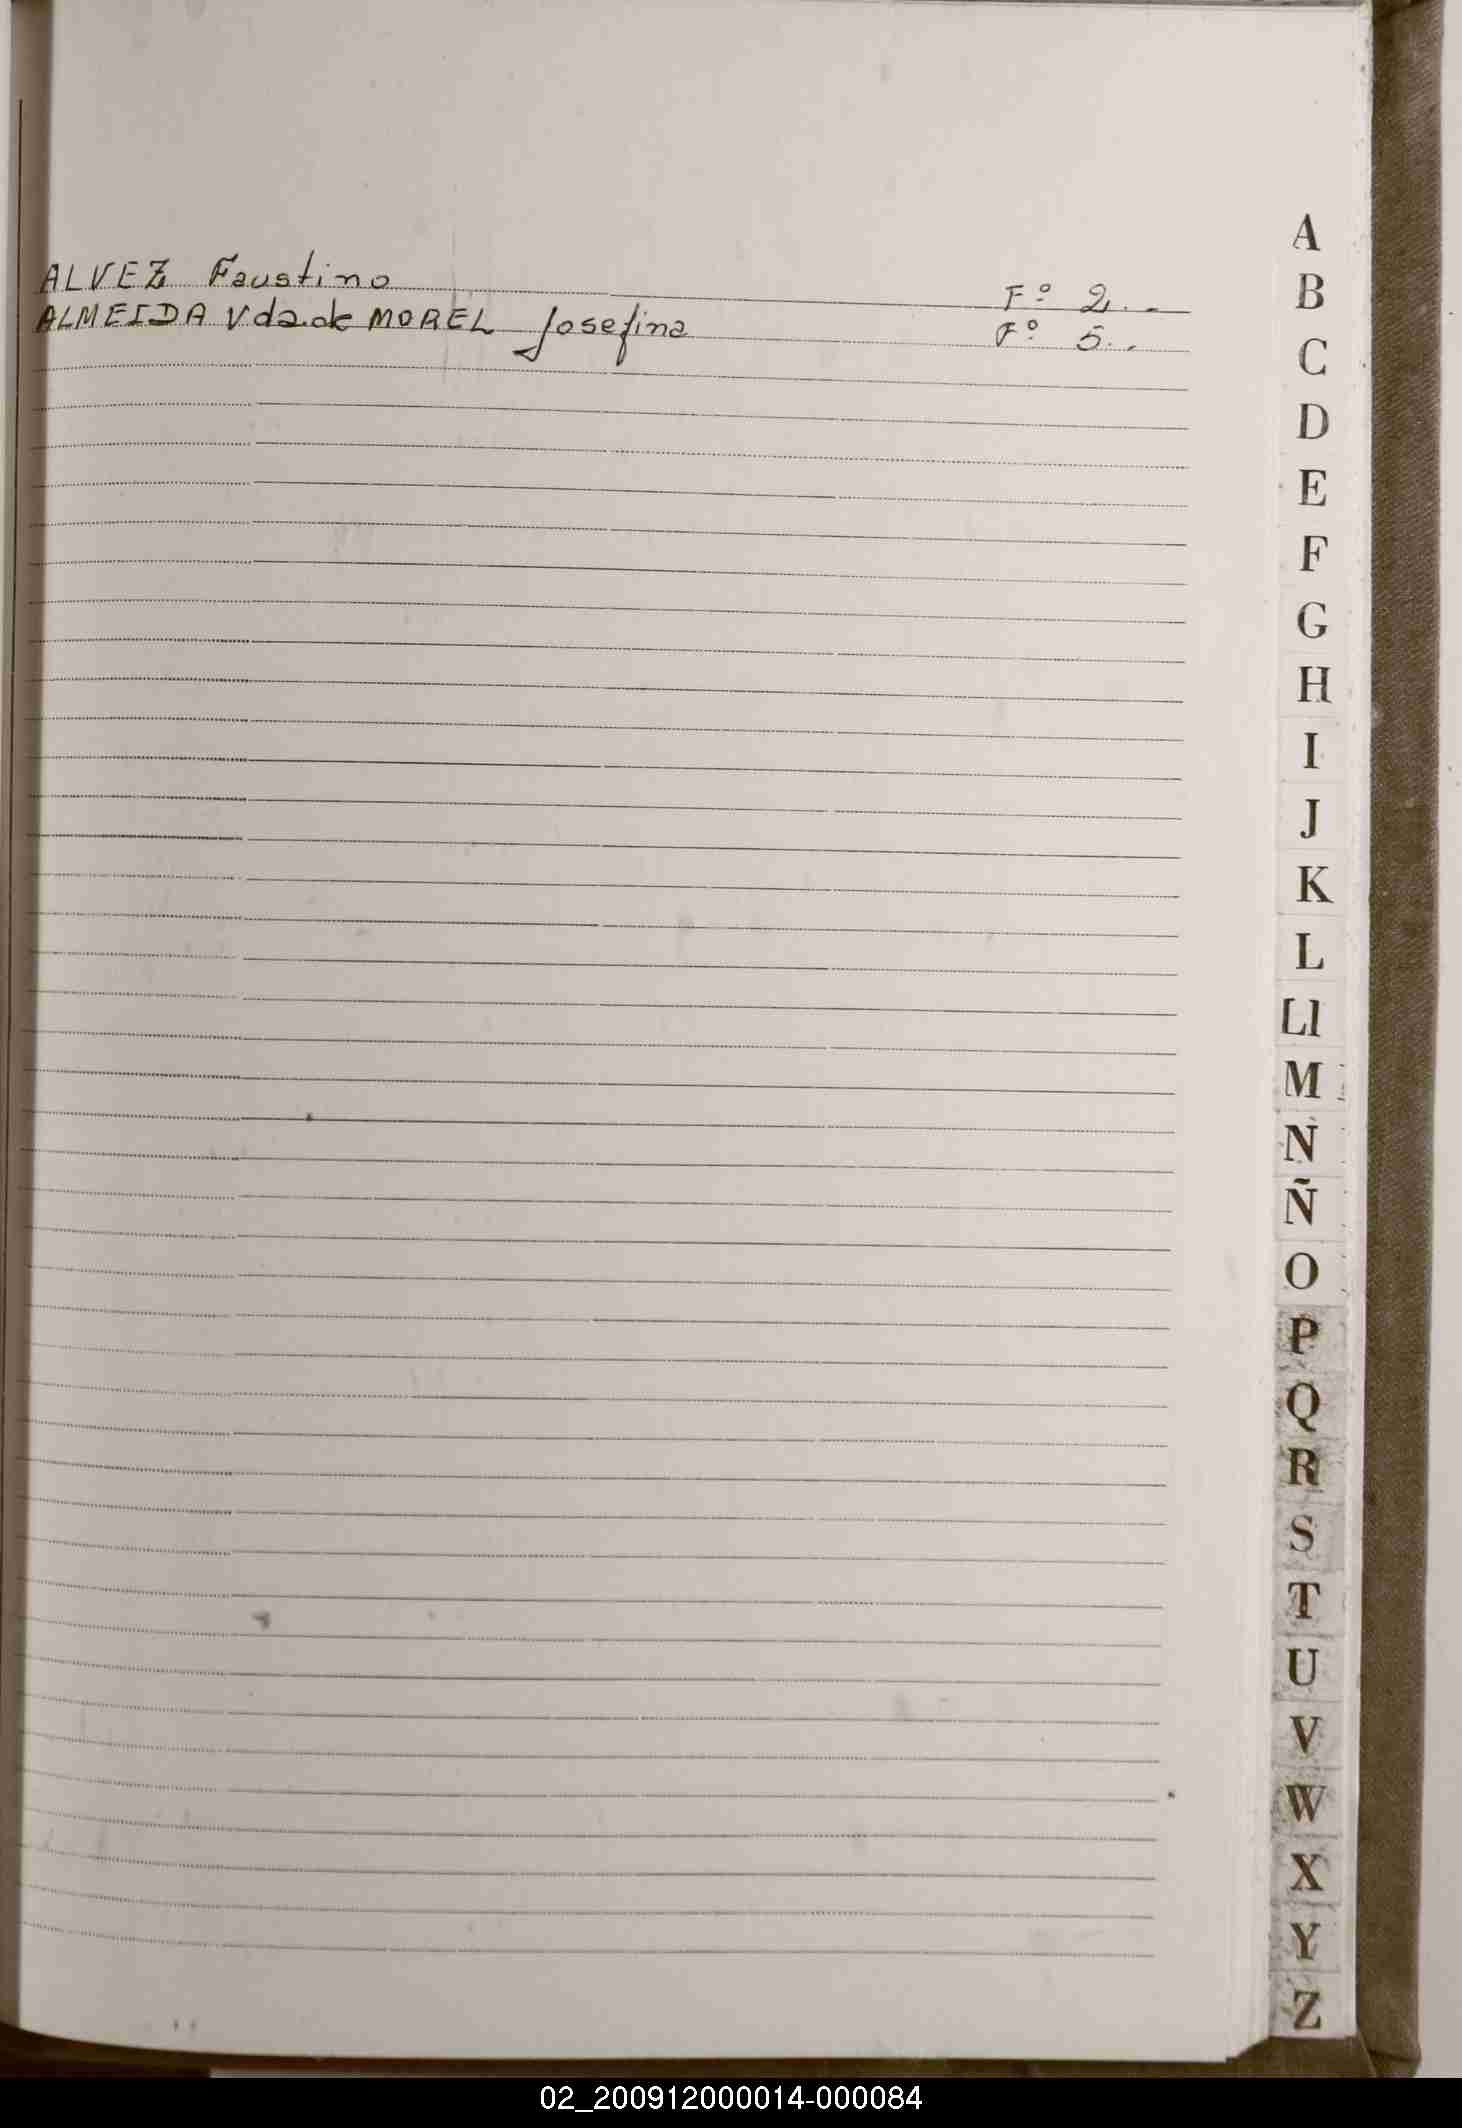 ALVEZ Faustino F° 2..-
ALMEIDA Vda.de MOREL Josefina F° 5..
A
B
C
D
E
F
G
H
I
J
K
L
Ll
M
N
Ñ
O
P
Q
R
S
T
U
V
W
X
Y
Z
02_200912000014-000084